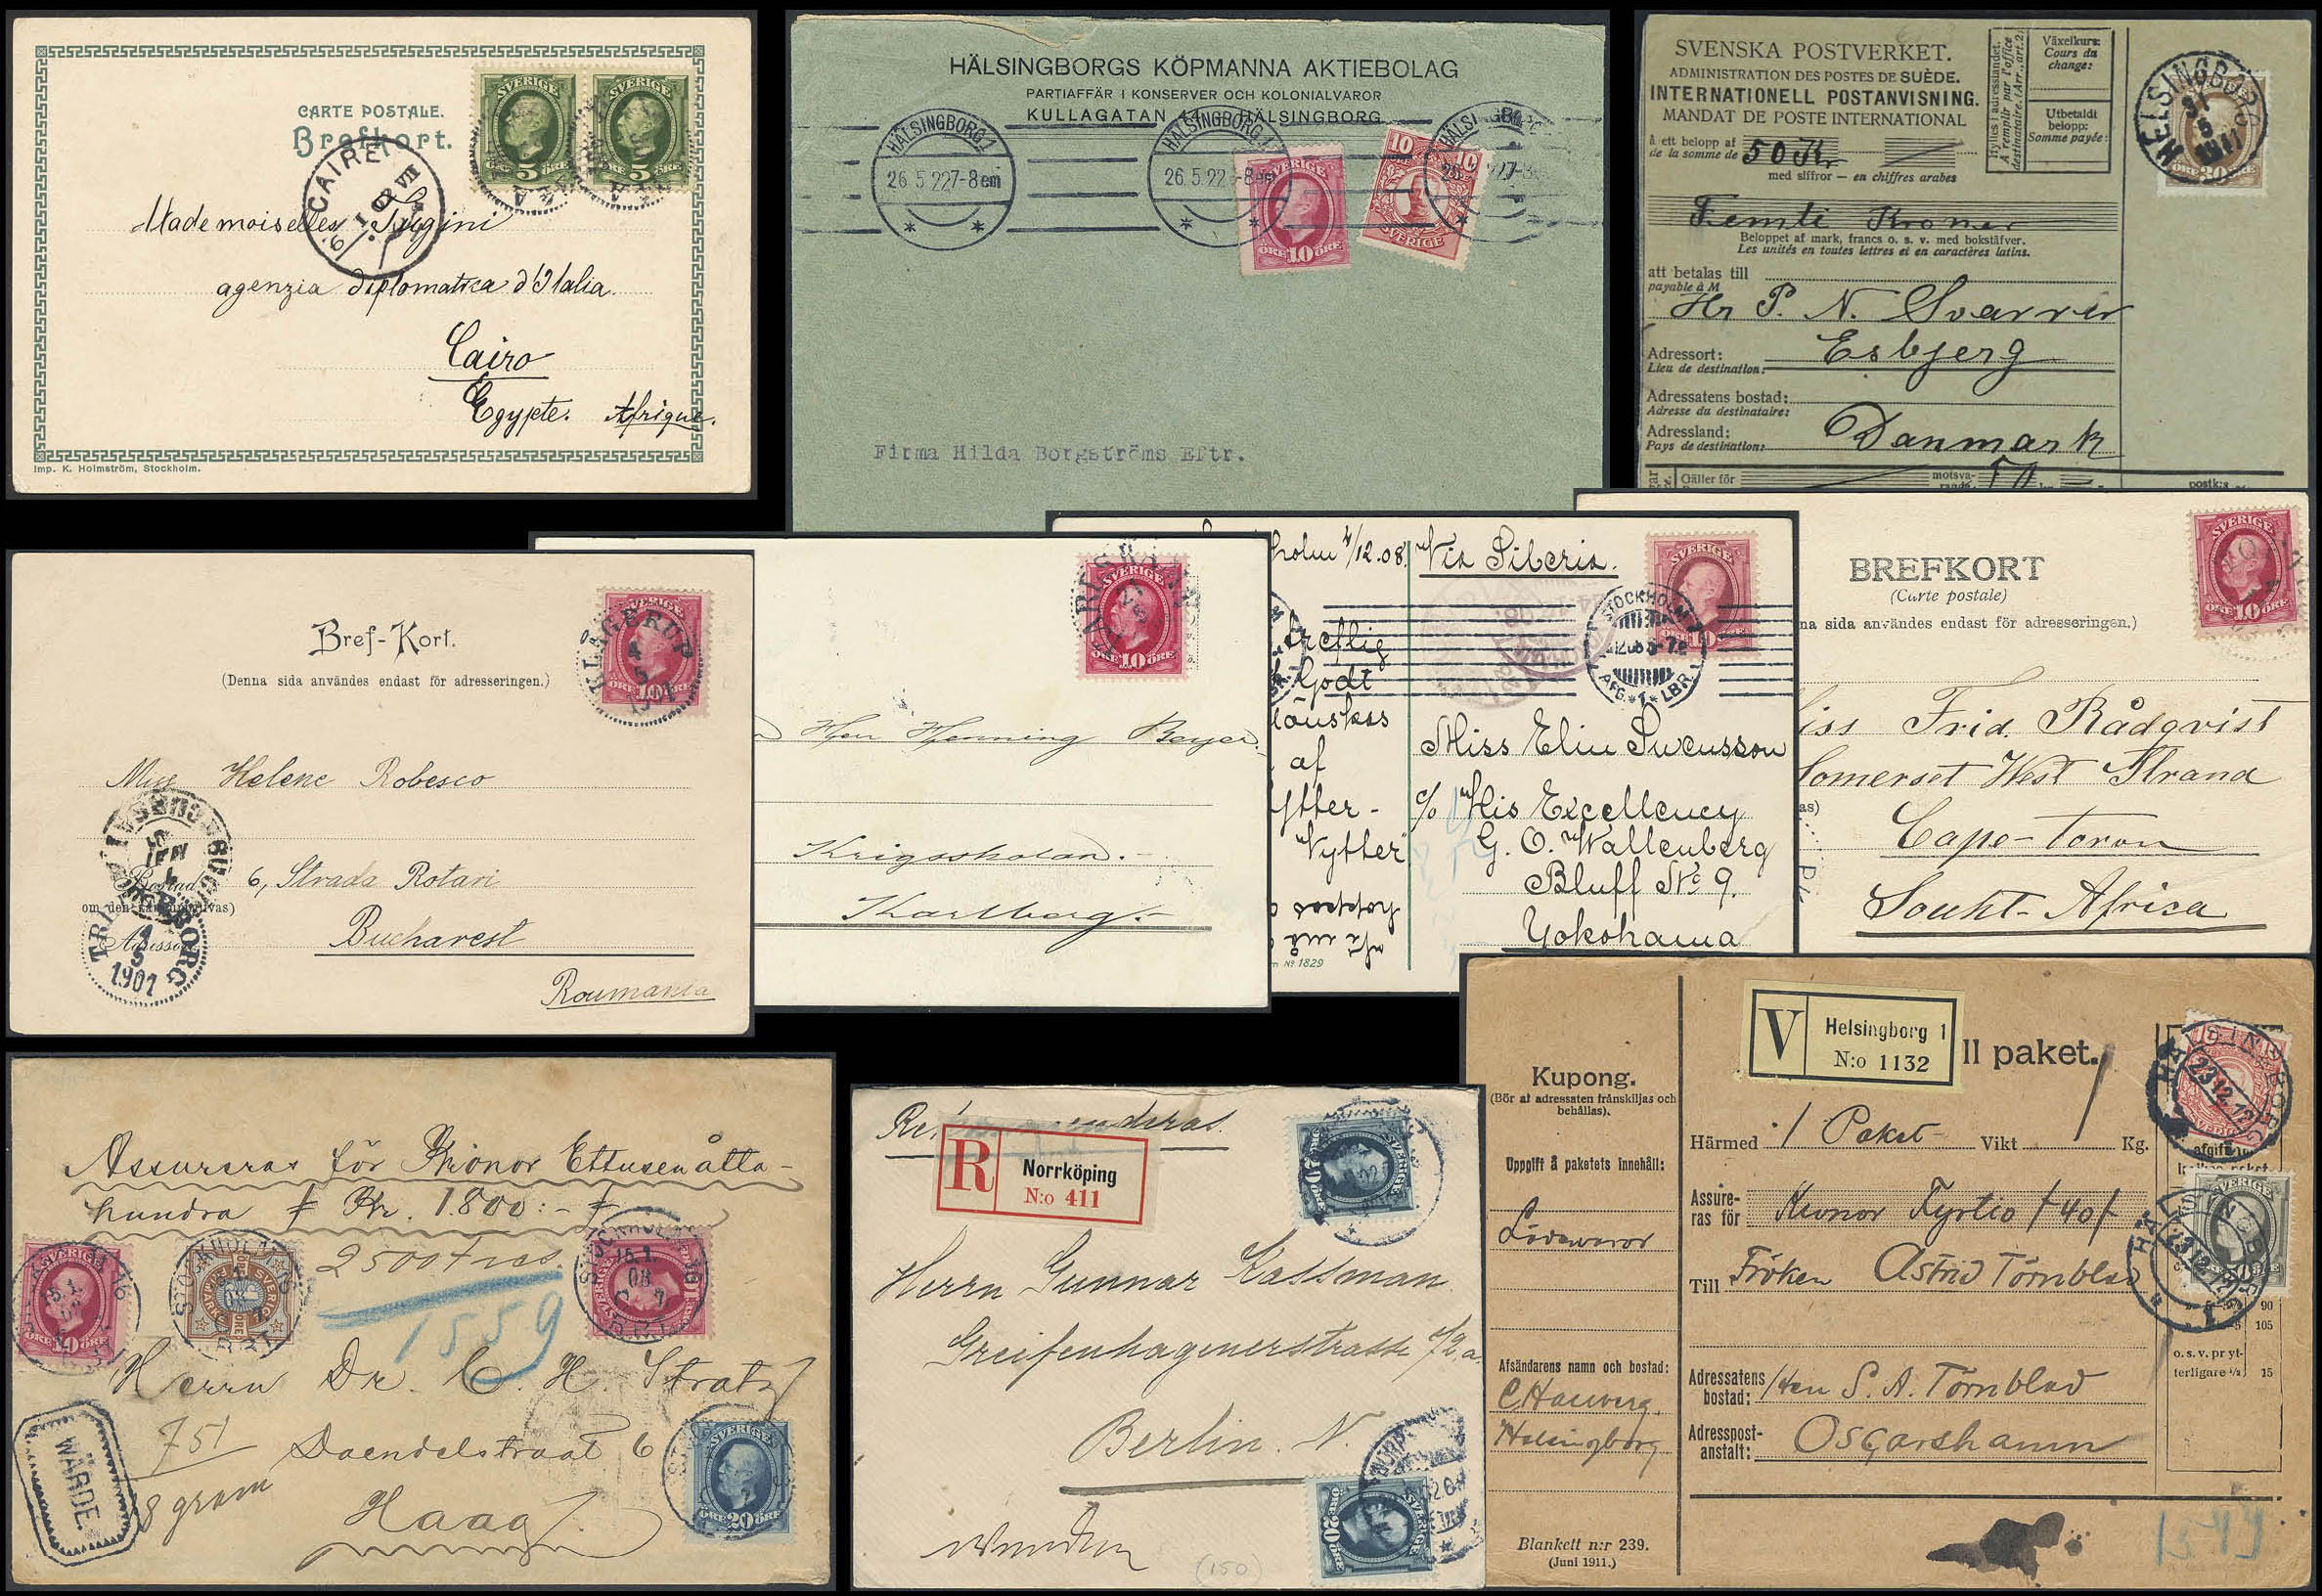 CARTE POSTALE.
Brefkort.
SVERIGE
SVERIGE
5 ÖRE
5 ÖRE
CAIRE
Mademoiselles
agenzia diplomatica d'Italia.
Cairo
Egypte. Afrique.
Imp. K. Holmström, Stockholm.
HÄLSINGBORGS KÖPMANNA AKTIEBOLAG
PARTIAFFÄR I KONSERVER OCH KOLONIALVAROR
KULLAGATAN HÄLSINGBORG
HÄLSINGBORG 1
26.5.22 7-8 em
HÄLSINGBORG 1
26.5.22 -8 em
SVERIGE
ÖRE 10 ÖRE
10 10
SVERIGE
Firma Hilda Borgströms Eftr.
SVENSKA POSTVERKET.
ADMINISTRATION DES POSTES DE SUÈDE.
INTERNATIONELL POSTANVISNING.
MANDAT DE POSTE INTERNATIONAL
å ett belopp af
de la somme de 50 Kr
med siffror — en chiffres arabes
Femti Kronor
Beloppet af mark, francs o. s. v. med bokstäfver.
Les unités en toutes lettres et en caractères latins.
att betalas till
payable à M
Hr P. N. Svarrer
Adressort: Esbjerg
Lieu de destination:
Adressatens bostad:
Adresse du destinataire:
Adressland: Danmark
Pays de destination:
Gäller för motsva- 50
postk:s
Hylles i adresslandet.
A remplir par l'office
destinataire. (Arr., art.2.)
Växelkurs:
Cours du
change:
Utbetaldt
belopp:
Somme payée:
HELSINGBORG
31
5
1911
ÖRE 30 ÖRE
Bref-Kort.
(Denna sida användes endast för adresseringen.)
SVERIGE
KLÅGERUP
4
5
1901
Miss Helene Robesco
Bostad 6, Strada Rotari
Bucharest
Roumania
TRELLEBORG
1901
SVERIGE
10 ÖRE
Herr Henning Beyer.
Krigsskolan.
Karlberg.
holm 4/12.08.
Via Siberia.
SVERIGE
STOCKHOLM
AFG. 1 LBR.
Godt
af
Nytter
Nº 1829
Miss Elin Swensson
c/o His Excellency
G. O. Wallenberg
Bluff No 9.
Yokohama
BREFKORT
(Carte postale)
na sida användes endast för adresseringen.)
SVERIGE
ÖRE 10 ÖRE
iss Frid. Rådqvist
Somerset West Strand
Cape-town
South-Africa
Assureras för Kronor Ettusenåtta-
hundra Kr. 1.800:-
2500 Frcs.
1559
SVERIGE
10 ÖRE
STOCKHOLM 16
15.1.
08
Herrn Dr. C. H. Stratz
751
Daendelstraat 6
8 gram
Haag
WÄRDE.
SVERIGE
ÖRE 20 ÖRE
R
Norrköping
N:o 411
SVERIGE
Herrn Gunnar Kassman
Greifenhagenerstrasse
Berlin. N.
SVERIGE
(150)
Kupong.
(Bör af adressaten frånskiljas och
behållas).
Uppgift å paketets innehåll:
Afsändarens namn och bostad:
Helsingborg
Blankett n:r 239.
(Juni 1911.)
V
Helsingborg 1
N:o 1132
ll paket.
Härmed 1 Paket Vikt 1 Kg.
Assure-
ras för Kronor Fyrtio /40/
Till Fröken Astrid Törnblad
Adressatens
bostad: Herr S. A. Törnblad
Adresspost-
anstalt: Oscarshamn
HÄLSINGBORG
23.12.12
SVERIGE
HÄLSINGBORG
23.12.12
90
105
o. s. v. pr yt-
terligare 15